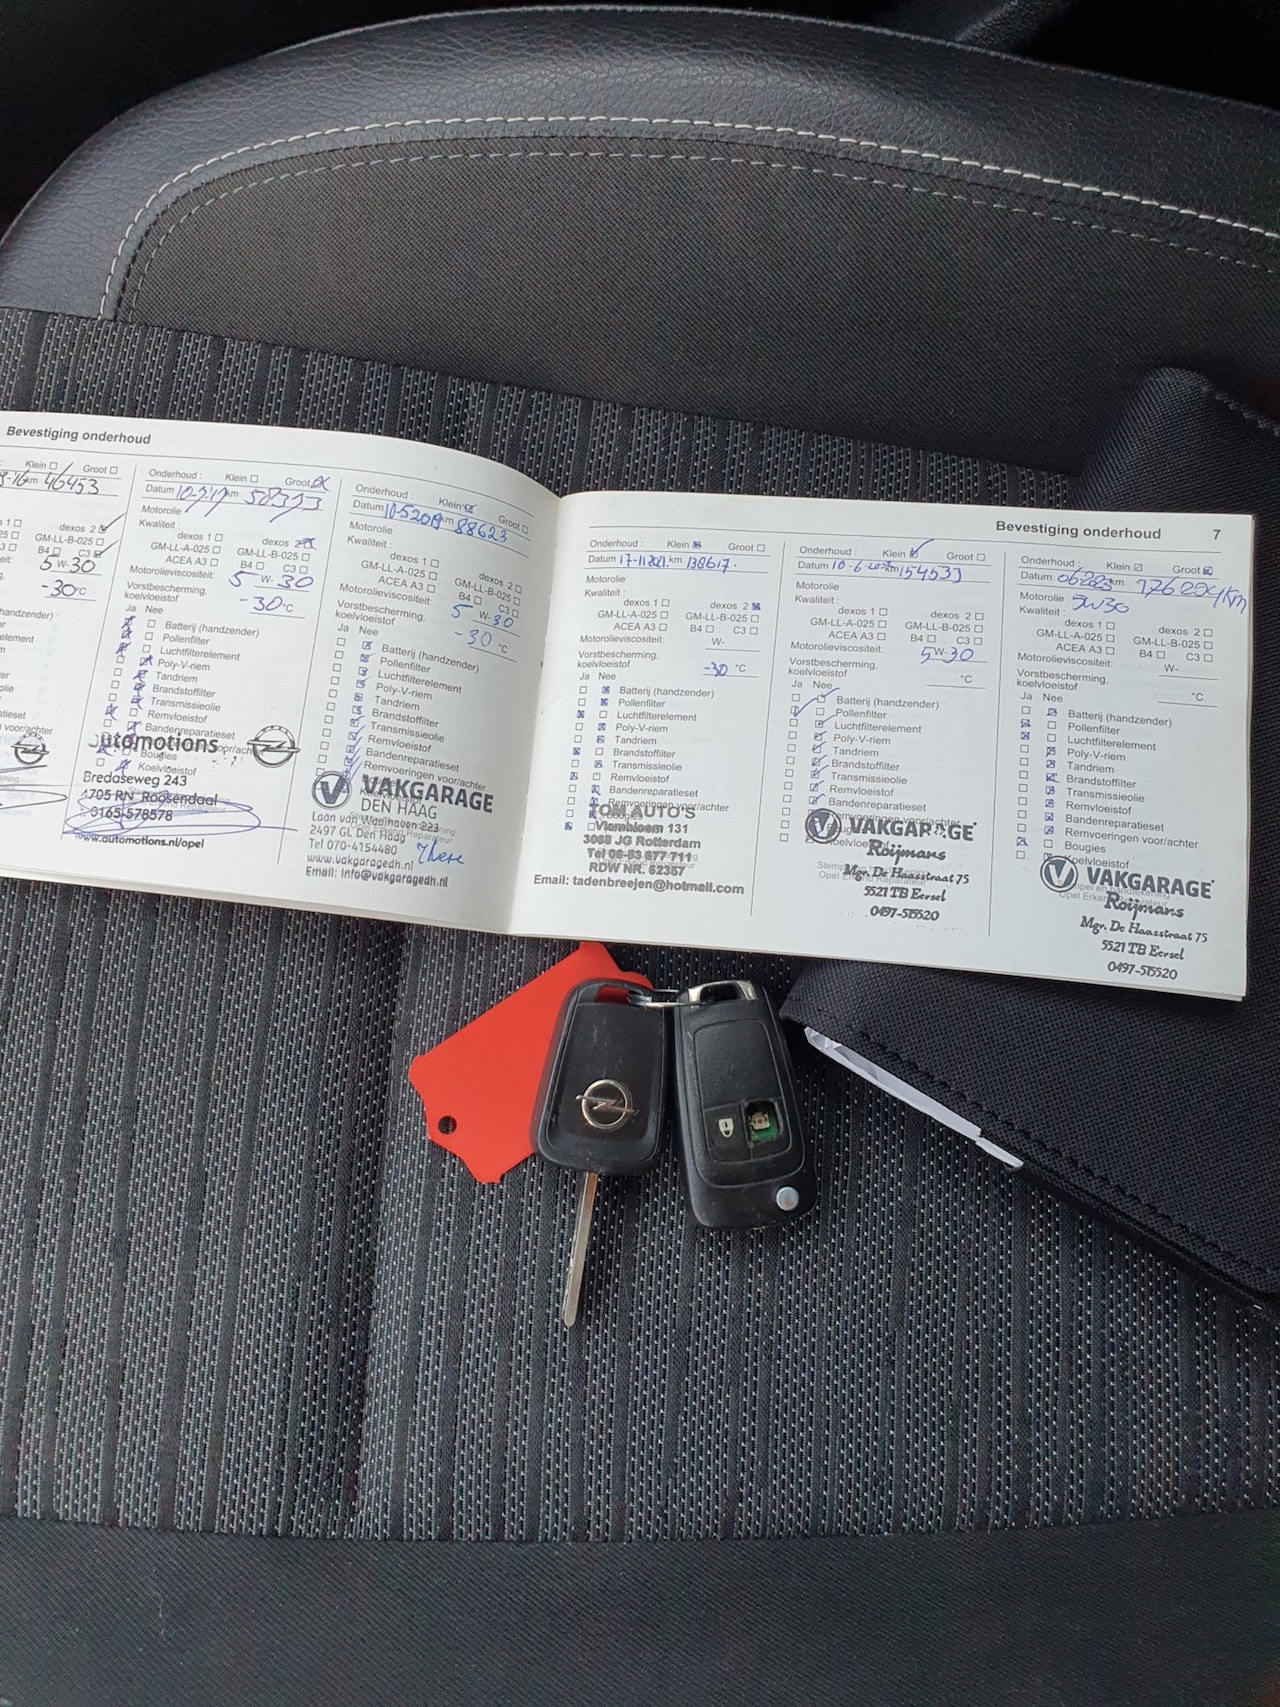 Bevestiging onderhoud
Klein Groot
46453
dexos 2
GM-LL-B-025
B4 C3
5 W-30
-30°C
Onderhoud : Klein Groot
Datum km 58393
Motorolie
Kwaliteit :
dexos 1 dexos 2
GM-LL-A-025 GM-LL-B-025
ACEA A3 B4 C3
Motorolieviscositeit: 5 W- 30
Vorstbescherming,
koelvloeistof -30°C
Ja Nee
Batterij (handzender)
Pollenfilter
Luchtfilterelement
Poly-V-riem
Tandriem
Brandstoffilter
Transmissieolie
Remvloeistof
Bandenreparatieset
Bougies
Koelvloeistof
Automotions
Bredaseweg 243
4705 RN Roosendaal
0165-578578
www.automotions.nl/opel
Onderhoud : Klein Groot
Datum 10-5 2019 km 88623
Motorolie
Kwaliteit :
dexos 1 dexos 2
GM-LL-A-025 GM-LL-B-025
ACEA A3 B4 C3
Motorolieviscositeit: 5 W-30
Vorstbescherming,
koelvloeistof -30 °C
Ja Nee
Batterij (handzender)
Pollenfilter
Luchtfilterelement
Poly-V-riem
Tandriem
Brandstoffilter
Transmissieolie
Remvloeistof
Bandenreparatieset
Remvoeringen voor/achter
VAKGARAGE
DEN HAAG
Laan van Waalhaven 223
2497 GL Den Haag
Tel 070-4154480
www.vakgaragedh.nl
Email: info@vakgaragedh.nl
Bevestiging onderhoud 7
Onderhoud : Klein Groot
Datum 17-11 2021 km 138617.
Motorolie
Kwaliteit :
dexos 1 dexos 2
GM-LL-A-025 GM-LL-B-025
ACEA A3 B4 C3
Motorolieviscositeit: W-
Vorstbescherming,
koelvloeistof -30 °C
Ja Nee
Batterij (handzender)
Pollenfilter
Luchtfilterelement
Poly-V-riem
Tandriem
Brandstoffilter
Transmissieolie
Remvloeistof
Bandenreparatieset
Remvoeringen voor/achter
Bougies
TOM AUTO'S
131
3068 JG Rotterdam
Tel 06-53 677 711
RDW NR. 62357
Email: tadenbreejen@hotmail.com
Onderhoud : Klein Groot
Datum 10-6- km 154533
Motorolie
Kwaliteit :
dexos 1 dexos 2
GM-LL-A-025 GM-LL-B-025
ACEA A3 B4 C3
Motorolieviscositeit: 5W-30
Vorstbescherming,
koelvloeistof °C
Ja Nee
Batterij (handzender)
Pollenfilter
Luchtfilterelement
Poly-V-riem
Tandriem
Brandstoffilter
Transmissieolie
Remvloeistof
Bandenreparatieset
Remvoeringen voor/achter
Bougies
Koelvloeistof
VAKGARAGE
Roijmans
Mgr. De Haasstraat 75
5521 TB Eersel
0497-515520
Onderhoud : Klein Groot
Datum 062023 km 176294km
Motorolie 5W30
Kwaliteit :
dexos 1 dexos 2
GM-LL-A-025 GM-LL-B-025
ACEA A3 B4 C3
Motorolieviscositeit: W-
Vorstbescherming,
koelvloeistof °C
Ja Nee
Batterij (handzender)
Pollenfilter
Luchtfilterelement
Poly-V-riem
Tandriem
Brandstoffilter
Transmissieolie
Remvloeistof
Bandenreparatieset
Remvoeringen voor/achter
Bougies
Koelvloeistof
VAKGARAGE
Roijmans
Mgr. De Haasstraat 75
5521 TB Eersel
0497-515520